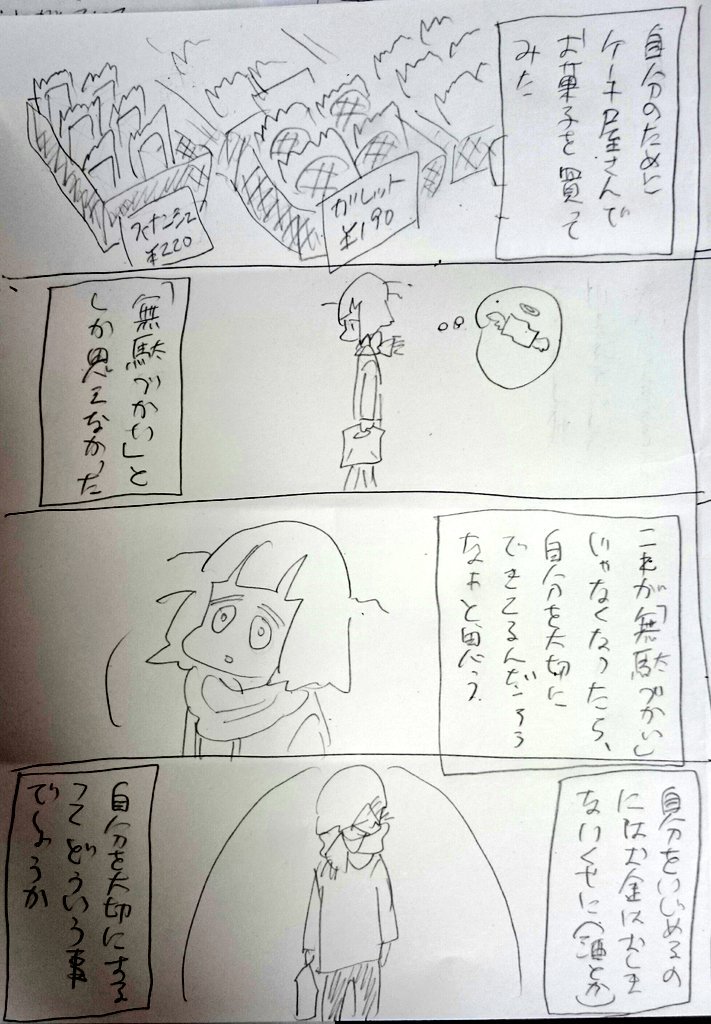 自分のために
ケーキ屋さんで
お菓子を買って
みた
ガレット
¥190
フィナンシェ
¥220
「無駄づかい」と
しか思えなかった
これが「無駄づかい」
じゃなくなったら、
自分を大切に
できてるんだろう
なぁと思う
自分をいじめるの
にはお金はおしま
ないくせに(酒とか)
自分を大切にする
ってどういう事
でしょうか